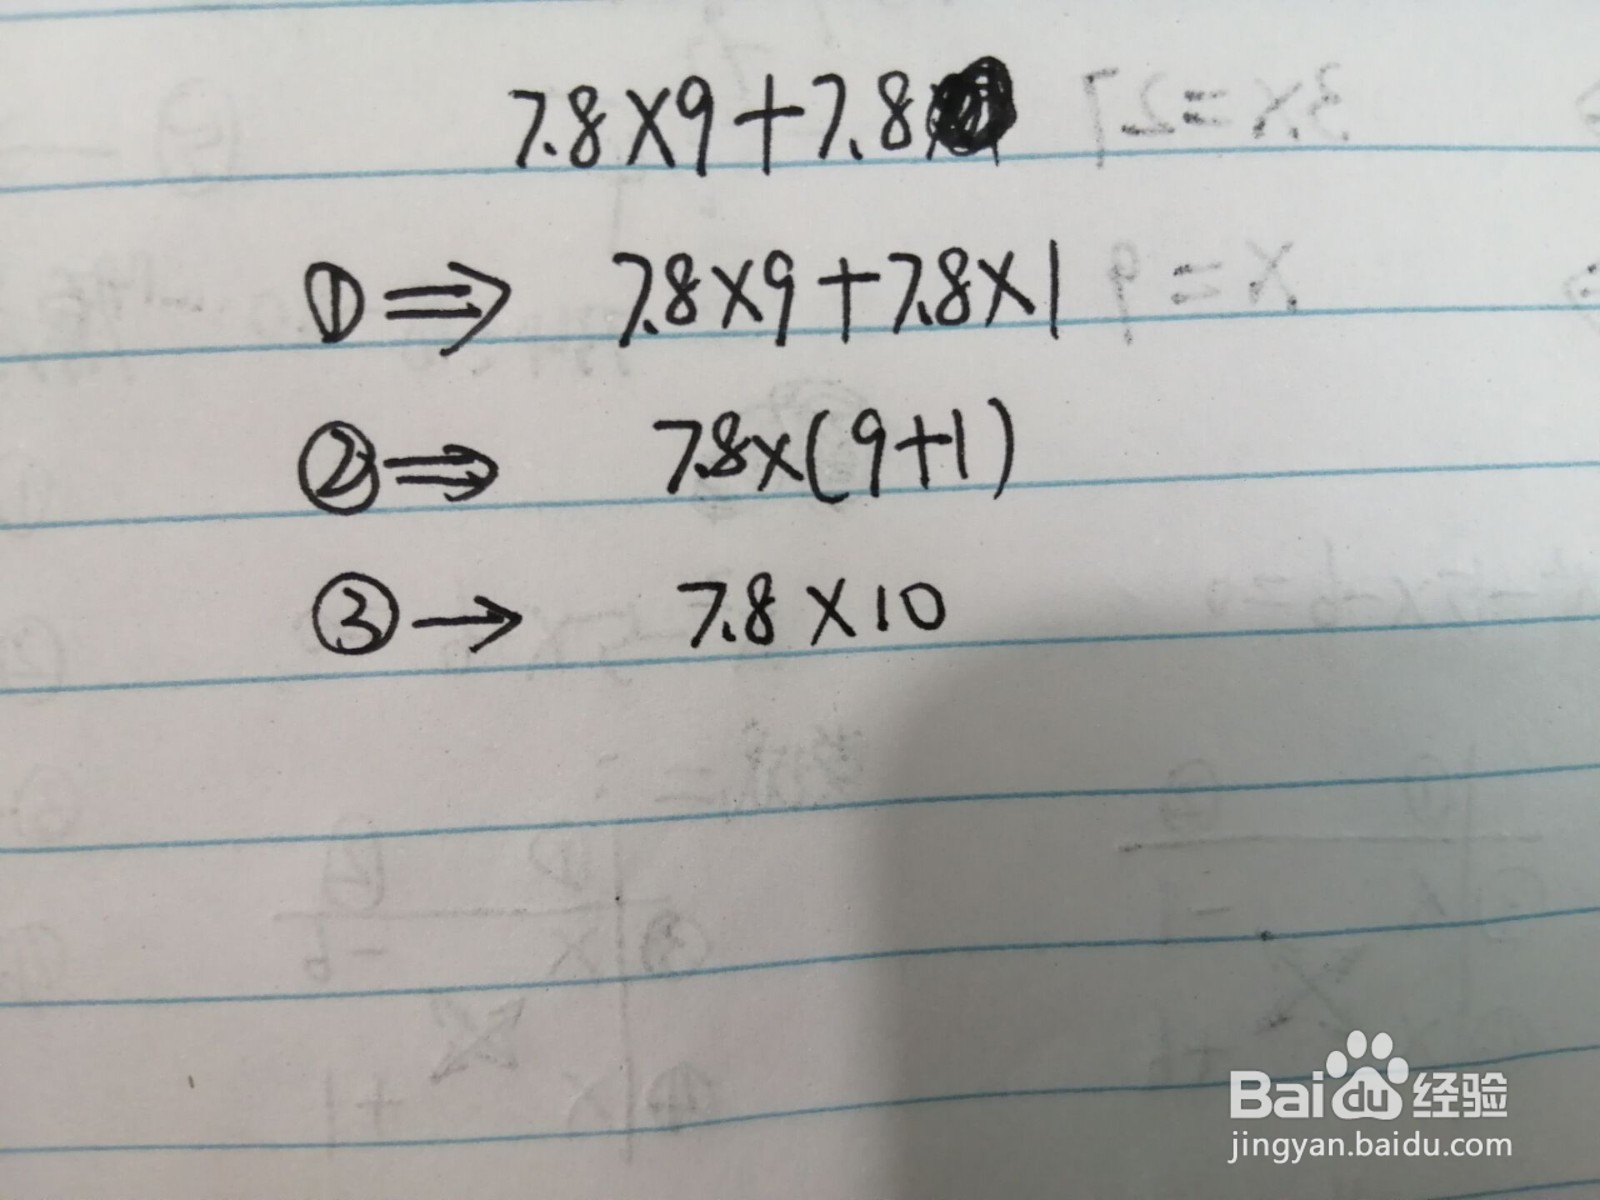 7.8×9+7.8
①⇒ 7.8×9+7.8×1
②⇒ 7.8×(9+1)
③→ 7.8×10
3x=27
x=9
Baidu经验
jingyan.baidu.com